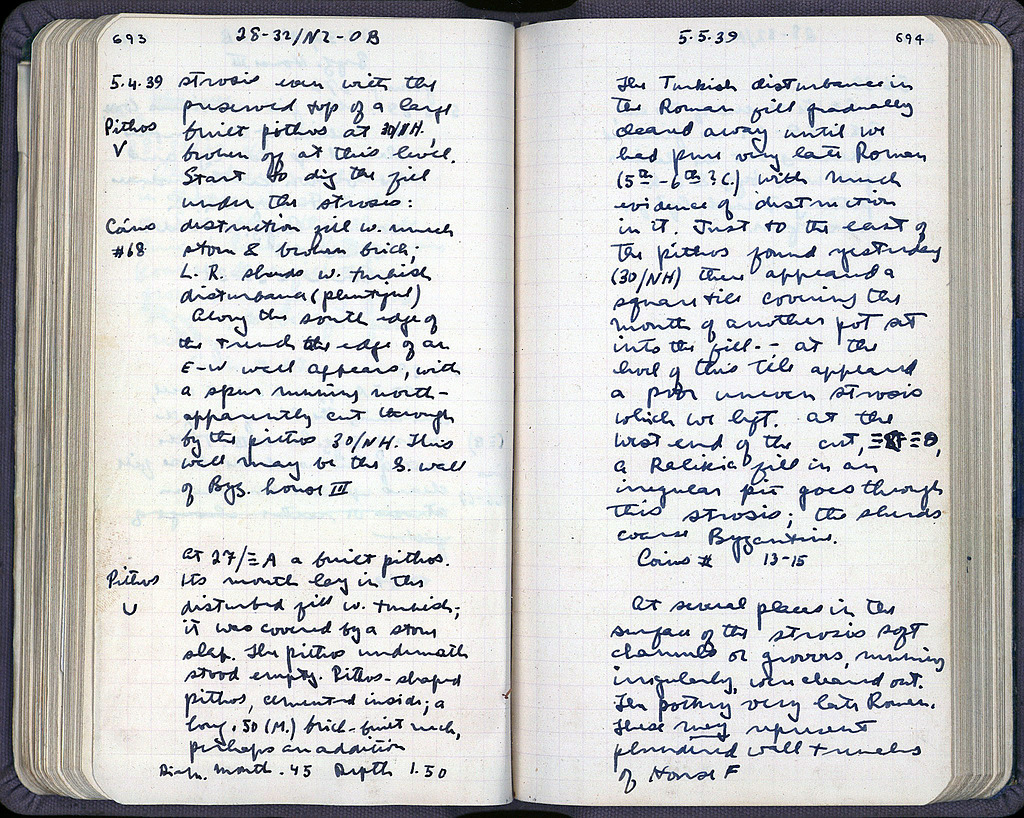 693
28-32/NZ-OB
5.4.39 strosis even with the
preserved top of a large
Pithos built pithos at 30/NH,
V broken off at this level.
Start to dig the fill
under the strosis:
Coins distruction fill w. much
#68 stone & broken brick;
L. R. sherds w. turkish
disturbance (plentiful)
Along the south edge of
the trench the edge of an
E-W wall appears, with
a spur running north-
apparently cut through
by the pithos 30/NH. This
wall may be the S. wall
of Byz. house III
At 27/ΞA a built pithos.
Pithos Its mouth lay in the
U disturbed fill w. turkish;
it was covered by a stone
slab. The pithos underneath
stood empty. Pithos-shaped
pithos, cemented inside; a
long .50 (M.) brick-built neck,
perhaps an addition
Diam. mouth .45 Depth 1.50
5.5.39
694
The Turkish disturbance in
the Roman fill gradually
cleared away until we
had pure very late Roman
(5th - 6th ? C.) with much
evidence of distruction
in it. Just to the east of
the pithos found yesterday
(30/NH) there appeared a
square tile covering the
mouth of another pot set
into the fill -- at the
level of this tile appeared
a poor uneven strosis
which we left. At the
west end of the cut,
a Relikia fill in an
irregular pit goes through
this strosis; the sherds
coarse Byzantine.
Coins # 13-15
At several places in the
surface of the strosis soft
channels or grooves, running
irregularly, were cleared out.
The pottery very late Roman.
These may represent
plundered wall trenches
of House F